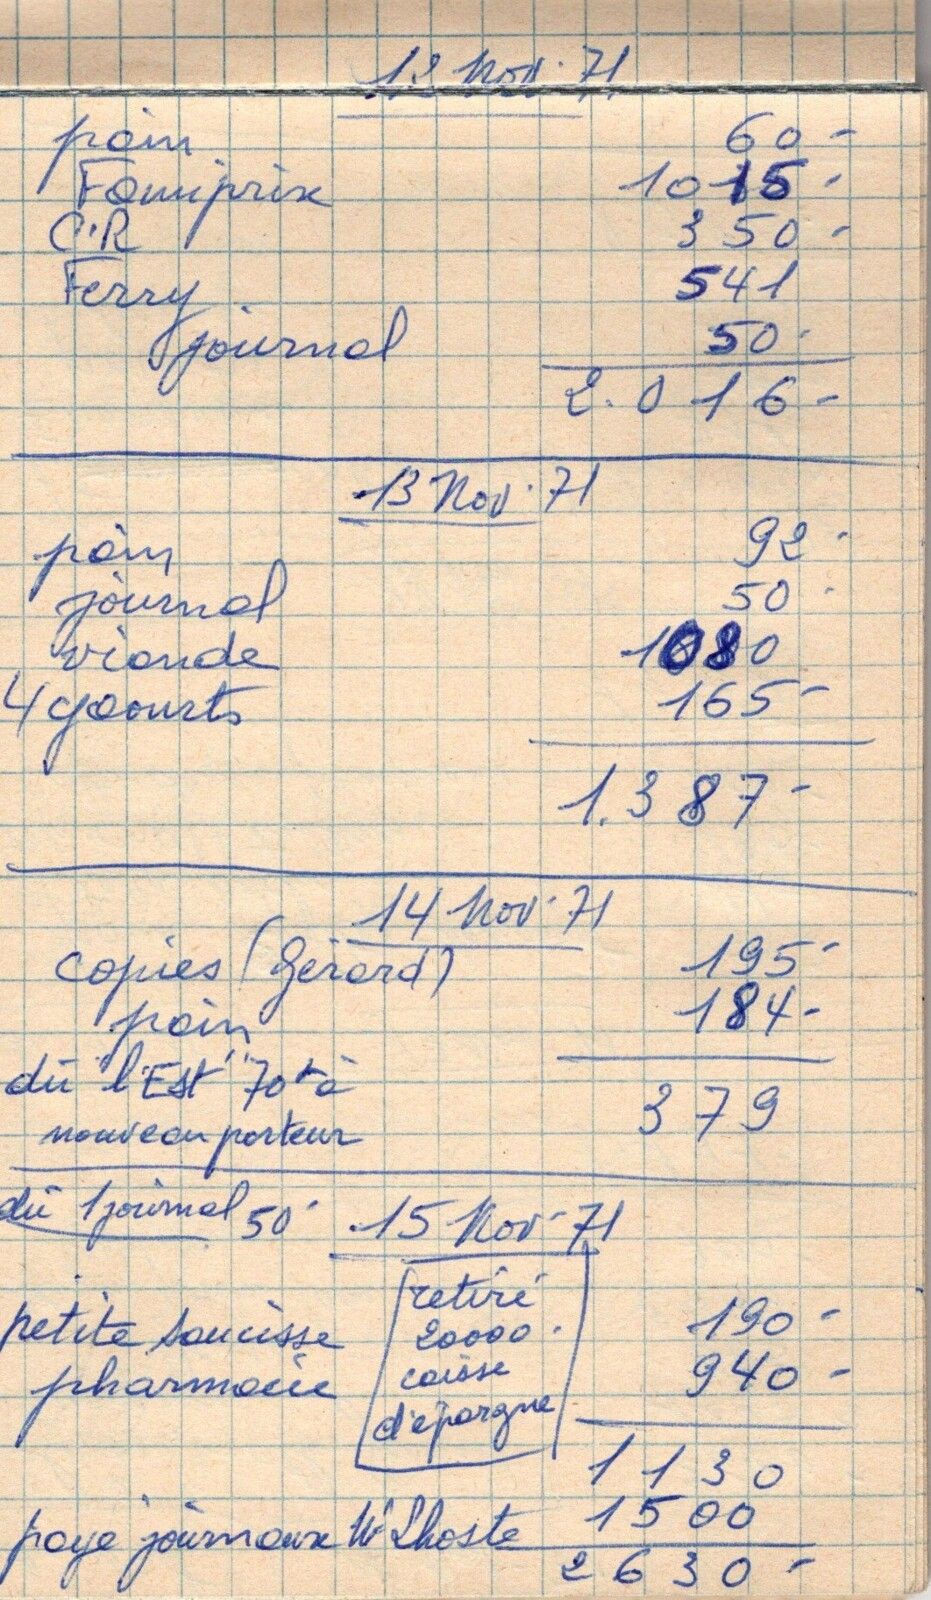 12 Nov. 71
pain 60 -
Famiprix 1015 -
C.R 350 -
Ferry 541
journal 50 -
2.016 -
13 Nov. 71
pain 92 -
journal 50 -
viande 1080
4 yaourts 165 -
1.387 -
14 Nov. 71
copies (Gérard) 195 -
pain 184 -
dû "l'Est" 70f à
nouveau porteur 379
dû 1 journal 50 - 15 Nov. 71
retiré
20000 -
caisse
d'épargne
petite saucisse 190 -
pharmacie 940 -
1130
payé journaux Lhoste 1500
2630 -